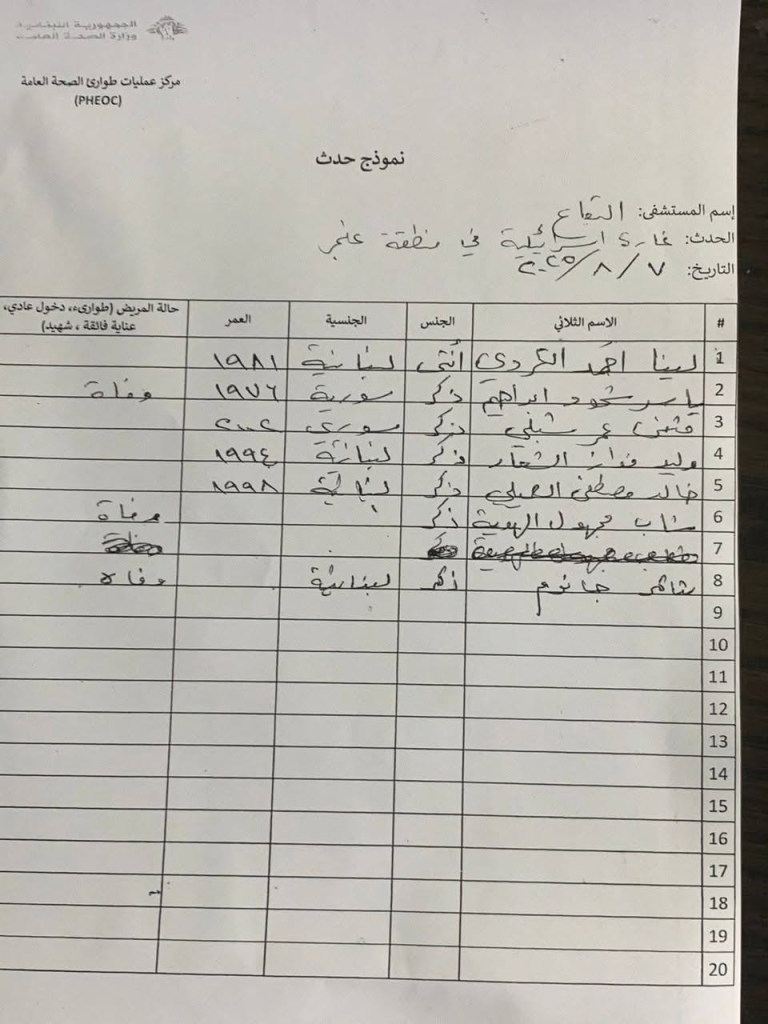 الجمهورية اللبنانية
وزارة الصحة العامة
مركز عمليات طوارئ الصحة العامة
(PHEOC)
نموذج حدث
إسم المستشفى: البقاع
الحدث: غارة اسرائيلية في منطقة عنجر
التاريخ: ٧/ ٨/ ٢٠٢٥
# الاسم الثلاثي الجنس الجنسية العمر حالة المريض (طوارىء، دخول عادي، عناية فائقة ، شهيد)
1 لينا احمد الكردي أنثى لبنانية ١٩٨١
2 ياسر شحود ابراهيم ذكر سورية ١٩٧٦ وفاة
3 عمر شبلي ذكر سوري ٢٠٠٢
4 وليد فواز الشعار ذكر لبنانية ١٩٩٤
5 خالد مصطفى ذكر لبنانية ١٩٩٨
6 شاب مجهول الهوية ذكر وفاة
7
8 شاكر جانوم ذكر لبنانية وفاة
9
10
11
12
13
14
15
16
17
18
19
20